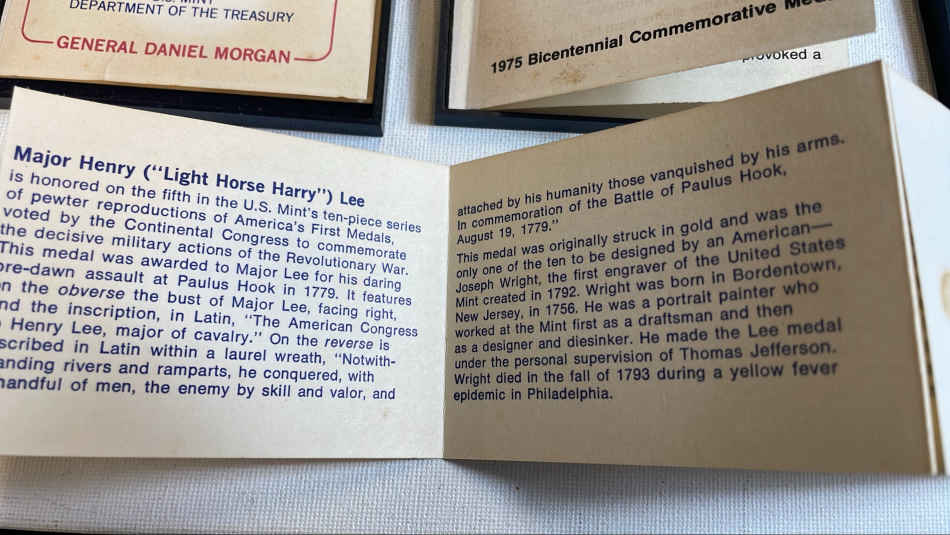 DEPARTMENT OF THE TREASURY
GENERAL DANIEL MORGAN
1975 Bicentennial Commemorative
provoked a
Major Henry (“Light Horse Harry”) Lee
is honored on the fifth in the U.S. Mint's ten-piece series
of pewter reproductions of America's First Medals,
voted by the Continental Congress to commemorate
the decisive military actions of the Revolutionary War.
This medal was awarded to Major Lee for his daring
pre-dawn assault at Paulus Hook in 1779. It features
on the obverse the bust of Major Lee, facing right,
and the inscription, in Latin, “The American Congress
to Henry Lee, major of cavalry.” On the reverse is
scribed in Latin within a laurel wreath, “Notwith-
anding rivers and ramparts, he conquered, with
handful of men, the enemy by skill and valor, and
attached by his humanity those vanquished by his arms.
In commemoration of the Battle of Paulus Hook,
August 19, 1779.”
This medal was originally struck in gold and was the
only one of the ten to be designed by an American—
Joseph Wright, the first engraver of the United States
Mint created in 1792. Wright was born in Bordentown,
New Jersey, in 1756. He was a portrait painter who
worked at the Mint first as a draftsman and then
as a designer and diesinker. He made the Lee medal
under the personal supervision of Thomas Jefferson.
Wright died in the fall of 1793 during a yellow fever
epidemic in Philadelphia.